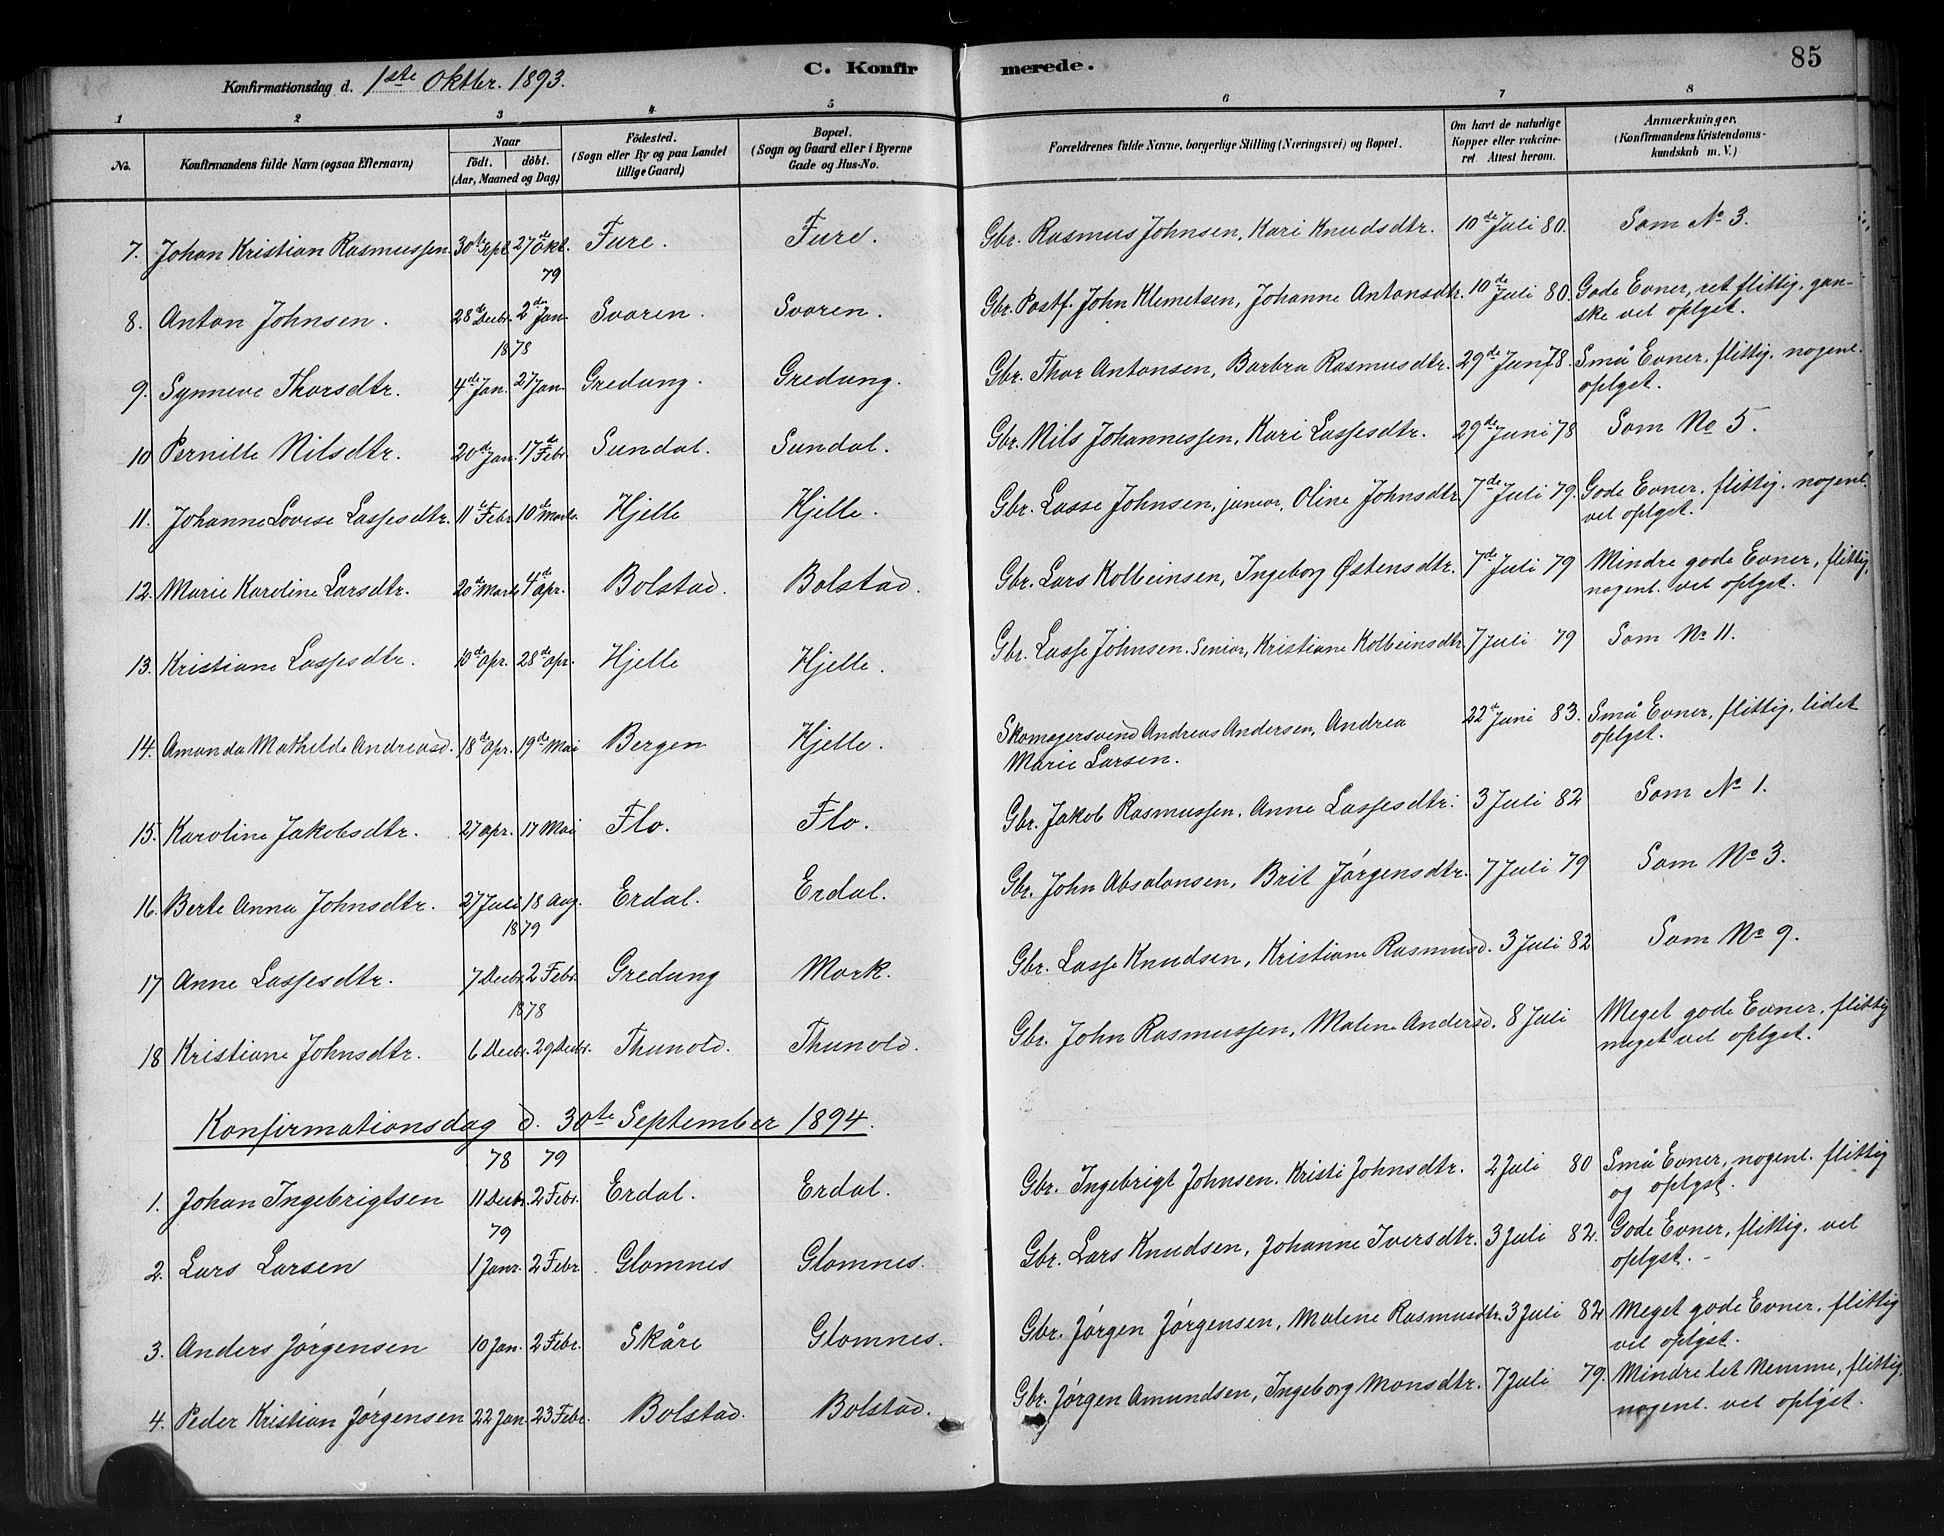 85
Konfirmationsdag d. 1ste Oktbr. 1893.
C. Konfirmerede.
1 2 3 4 5 6 7 8
No. Konfirmandens fulde Navn (ogsaa Efternavn)
Naar
födt. döbt.
(Aar, Maaned og Dag)
Födested.
(Sogn eller By og paa Landet
tillige Gaard)
Bopæl.
(Sogn og Gaard eller i Byerne
Gade og Hus-No.
Forældrenes fulde Navne, borgerlige Stilling (Næringsvei) og Bopæl.
Om havt de naturlige
Kopper eller vakcine-
ret Attest herom.
Anmærkninger.
(Konfirmandens Kristendoms-
kundskab m. V.)
7. Johan Kristian Rasmussen 30te Sept. 27de Okt. Fure. Fure. Gbr. Rasmus Johnsen, Kari Knudsdtr. 10de Juli 80. Som No 3.
79
8. Anton Johnsen. 28de Decbr. 2de Jan. Svoren. Svoren. Gbr. Postf. John Klemetsen, Johanne Antonsdtr. 10de Juli 80. Gode Evner, ret flittig, gan-
ske vel oplyst.
1878
9. Synneve Thorsdtr. 4de Jan. 27 Jan. Gredung. Gredung. Gbr. Thor Antonsen, Barbra Rasmusdtr. 29de Juni 78. Små Evner, flittig. nogenl.
oplyst.
10 Pernille Nilsdtr. 20de Jan. 17de Febr. Sundal. Sundal. Gbr. Nils Johannessen, Kari Lassesdtr. 29de Juni 78 Som No 5.
11. Johanne Lovise Lassesdtr. 11te Febr. 10de Marts Hjelle Hjelle. Gbr. Lasse Johnsen, junior, Oline Johnsdtr. 7de Juli 79. Gode Evner, flittig. nogenl.
vel oplyst.
12. Marie Karoline Larsdtr. 20de Marts 4de Apr. Bolstad. Bolstad. Gbr. Lars Kolbeinsen, Ingeborg Østensdtr. 7de Juli 79 Mindre gode Evner, flittig,
nogenl. vel oplyst.
13. Kristiane Lassesdtr. 10de Apr. 28de Apr. Hjelle Hjelle. Gbr. Lasse Johnsen. Senior, Kristiane Kolbeinsdtr. 7 Juli 79 Som No 11.
14. Amanda Mathilde Andreasd. 18de Apr. 19de Mai Bergen Hjelle. Skomagersvend Andreas Andersen, Andrea 22de Juni 83. Små Evner, flittig, lidet
Marie Larsen. oplyst.
15. Karoline Jakobsdtr. 27 Apr. 17 Mai Flo. Flo. Gbr. Jakob Rasmussen. Anne Lassesdtr. 3 Juli 82 Som No 1.
16. Berte Anna Johnsdtr. 27 Juli 18 Aug. Erdal. Erdal. Gbr. John Absalonsen, Brit Jörgensdtr. 7 Juli 79 Som No 3.
1879
17 Anne Lassesdtr. 7 Decbr. 2 Febr. Gredung Mork. Gbr. Lasse Knudsen, Kristiane Rasmusd. 3 Juli 82 Som No 9.
1878
18 Kristiane Johnsdtr. 6 Decbr. 29 Decbr. Thunold. Thunold. Gbr. John Rasmussen, Malene Andersd. 8 Juli Meget gode Evner, flittig
meget vel oplyst.
Konfirmationsdag d. 30te September 1894.
78 79
1. Johan Ingebrigtsen 11 Decbr. 2 Febr. Erdal. Erdal. Gbr. Ingebrigt Johnsen. Kristi Johnsdtr. 2 Juli 80 Små Evner, nogenl. flittig
og oplyst.
79
2. Lars Larsen 1 Janr. 2 Febr. Glomnes Glomnes. Gbr. Lars Knudsen, Johanne Iversdtr. 3 Juli 82. Gode Evner, flittig. vel
oplyst. -
3. Anders Jörgensen 10 Jan. 2 Febr. Skåre Glomnes. Gbr. Jörgen Jörgensen, Malene Rasmusdtr. 3 Juli 82 Meget gode Evner, flittig
vel oplyst.
4. Peder Kristian Jörgensen 22 Jan. 23 Febr. Bolstad. Bolstad. Gbr. Jörgen Amundsen, Ingeborg Monsdtr. 7 Juli 79. Mindre let Nemme, flittig,
nogenl. vel oplyst.